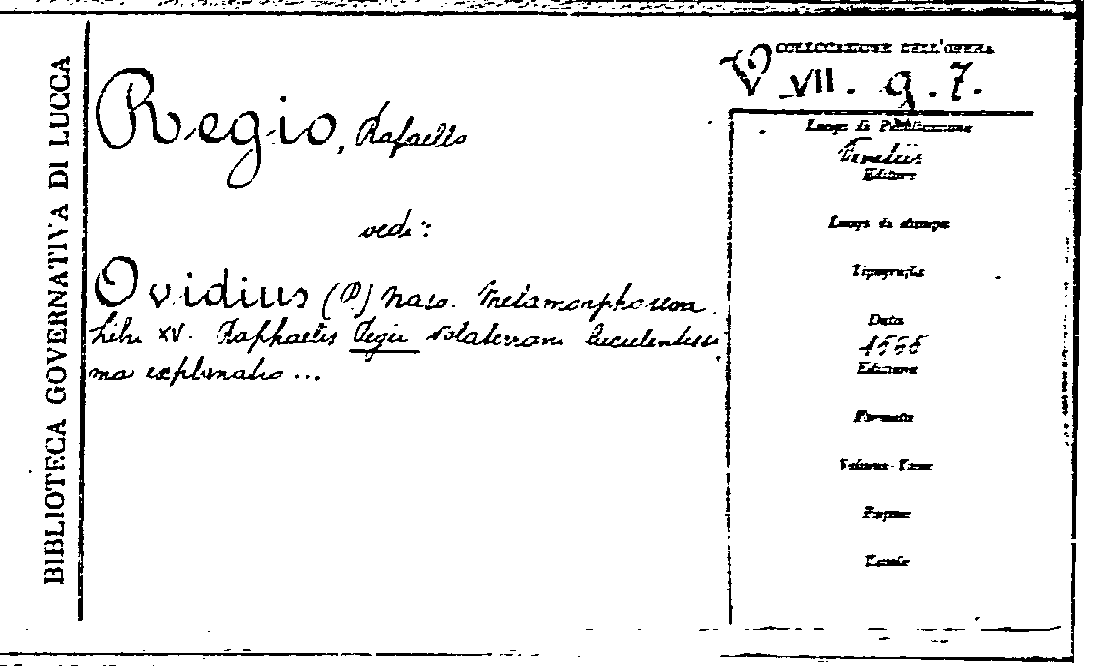 BIBLIOTECA GOVERNATIVA DI LUCCA
Regio, Rafaello
vedi:
Ovidius (P.) Naso. Metamorphoseon
Libri XV. Raphaelis Regii Volaterrani luculentissi
ma explanatio ...
COLLOCAZIONE DELL'OPERA
VII. g. 7.
Luogo di Pubblicazione
Venetiis
Editore
Luogo di stampa
Tipografia
Data
Edizione
Formato
Volume-Tomo
Pagine
Tavole